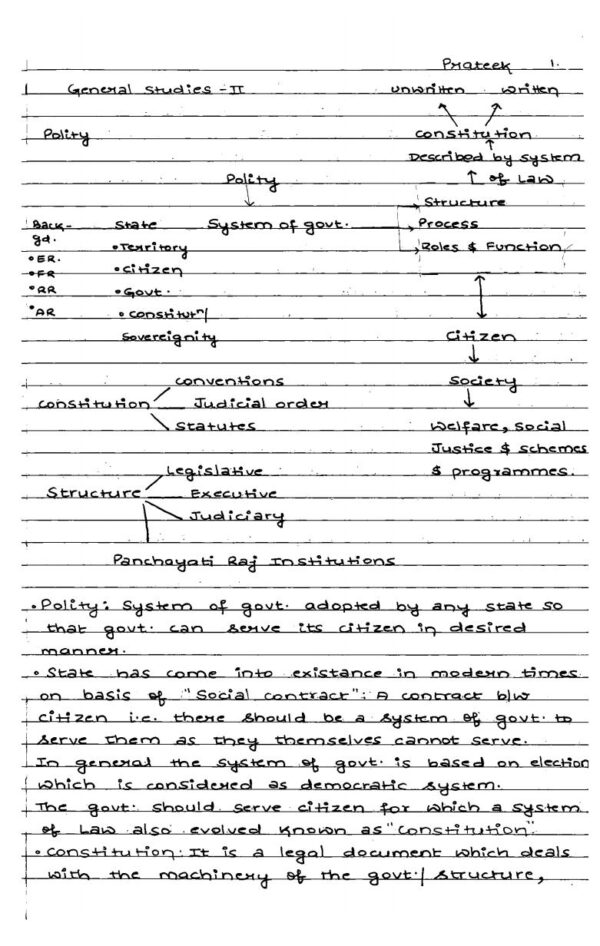 Prateek 1.
General Studies - II unwritten written
Polity constitution
Described by system
Polity of Law
Structure
Back- State System of govt. Process
gd. • Territory Roles & Function
• ER. • citizen
• FR • Govt.
• RR • constitutn/
• AR Sovereignity Citizen
conventions Society
constitution Judicial order
Statutes Welfare, Social
Justice & schemes
Legislative & programmes.
Structure Executive
Judiciary
Panchayati Raj Institutions
• Polity: System of govt. adopted by any state so
that govt. can serve its citizen in desired
manner.
• State has come into existance in modern times
on basis of "Social contract": A contract b/w
citizen i.e. there should be a system of govt. to
serve them as they themselves cannot serve.
In general the system of govt. is based on election
which is considered as democratic system.
The govt. should serve citizen for which a system
of Law also evolved known as "constitution".
• constitution: It is a legal document which deals
with the machinery of the govt./ structure,